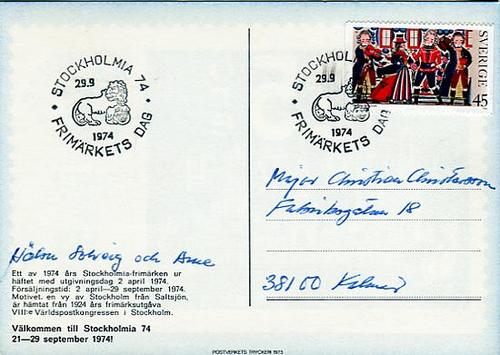 STOCKHOLMIA 74
29.9
1974
FRIMÄRKETS DAG
STOCKHOLM
29.9
1974
FRIMÄRKETS DAG
SVERIGE
45
Major Christian Christensson
Fabriksgatan 18
38100 Kalmar
Hälsn Solveig och Arne
Ett av 1974 års Stockholmia-frimärken ur
häftet med utgivningsdag 2 april 1974.
Försäljningstid: 2 april—29 september 1974.
Motivet, en vy av Stockholm från Saltsjön,
är hämtat från 1924 års frimärksutgåva
VIII:e Världspostkongressen i Stockholm.
Välkommen till Stockholmia 74
21—29 september 1974!
POSTVERKETS TRYCKERI 1973